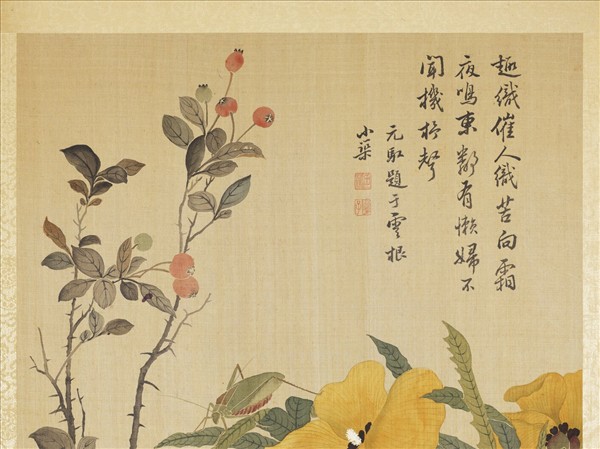 趣織催人織苦向霜
夜鳴東鄰有懶婦不
聞機杼聲
元馭題于雲根
小築